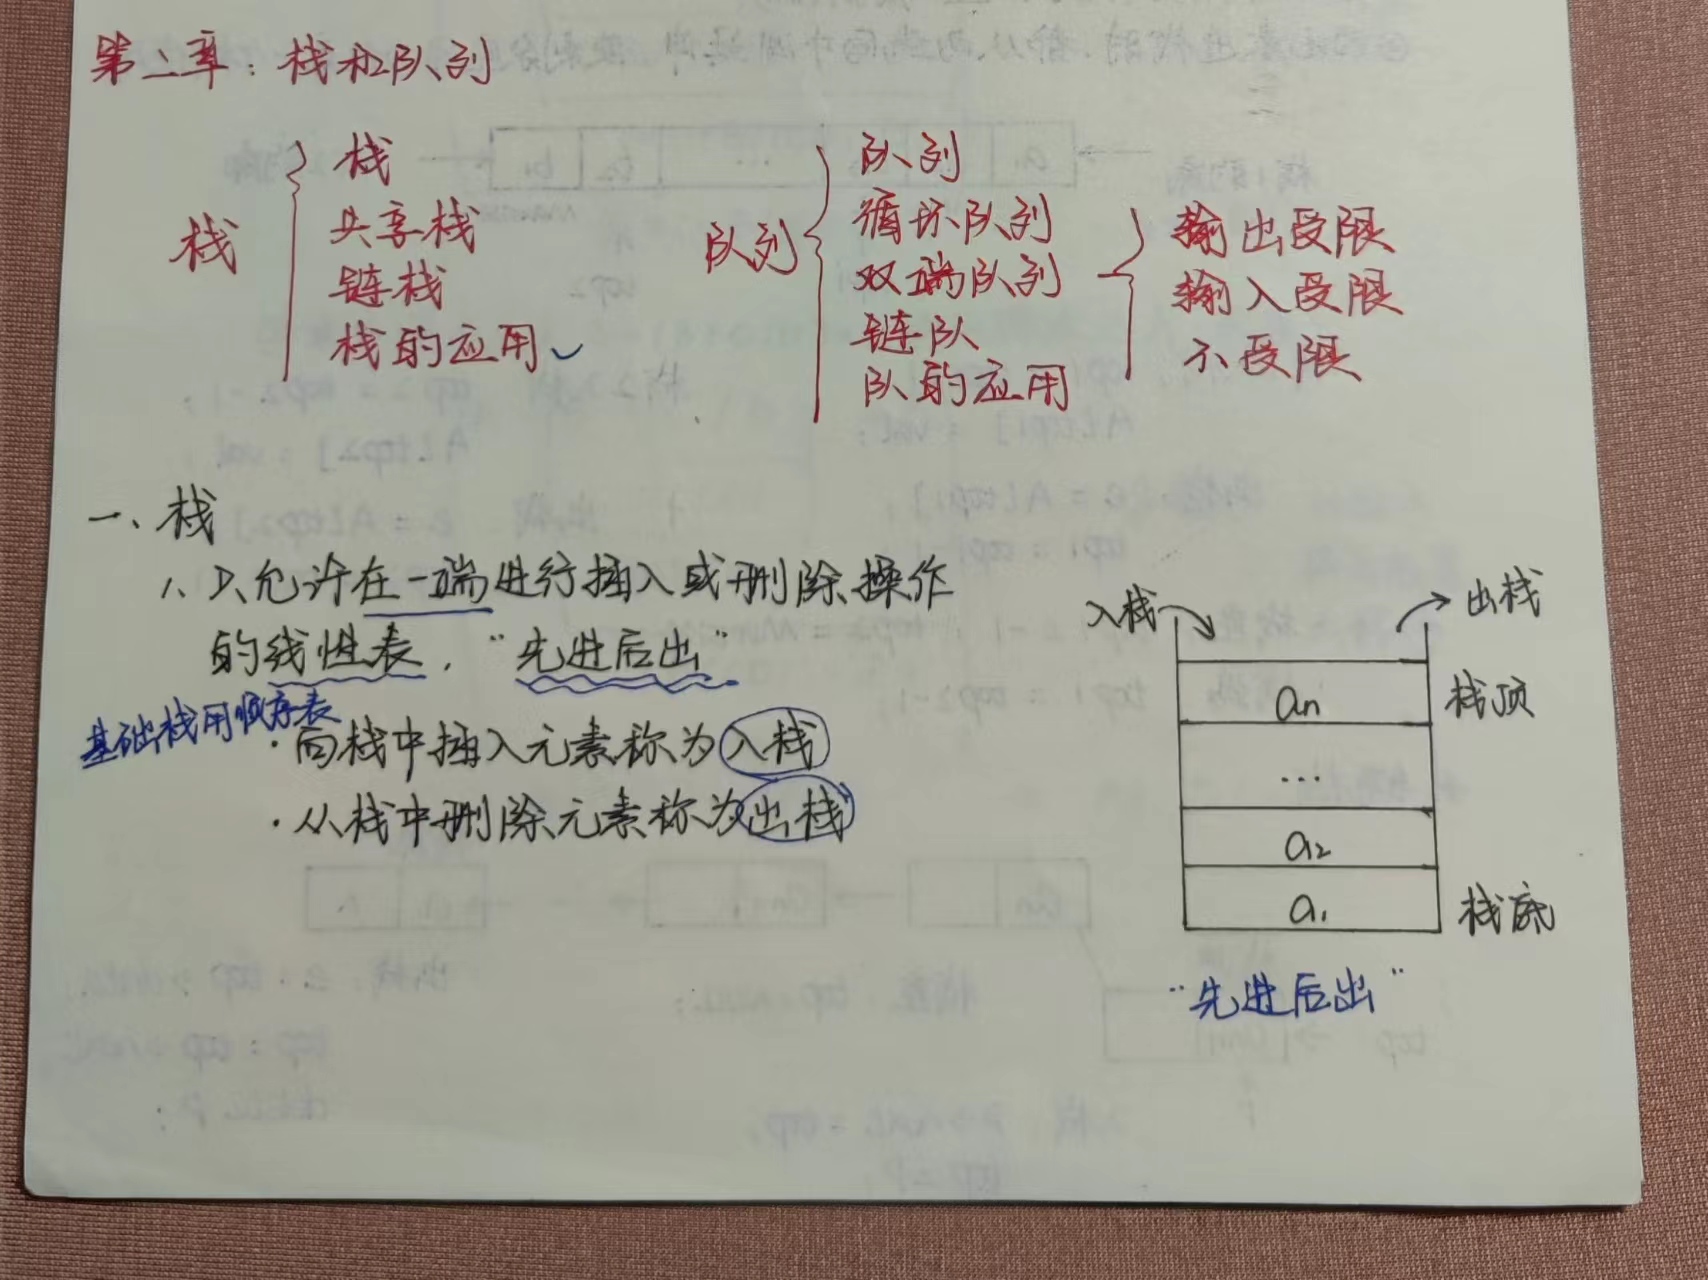 第二章：栈和队列
栈
栈
共享栈
链栈
栈的应用
队列
队列
循环队列
双端队列
链队
队的应用
输出受限
输入受限
不受限
一、栈
1、只允许在一端进行插入或删除操作
的线性表，“先进后出”
基础栈用顺序表
·向栈中插入元素称为入栈
·从栈中删除元素称为出栈
入栈
出栈
an
栈顶
...
a2
a1
栈底
“先进后出”